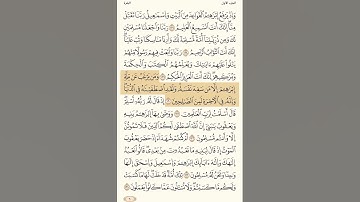 الجزء الأول البقرة
وَإِذْ يَرْفَعُ إِبْرَٰهِـۧمُ ٱلْقَوَاعِدَ مِنَ ٱلْبَيْتِ وَإِسْمَٰعِيلُ رَبَّنَا تَقَبَّلْ
مِنَّآ إِنَّكَ أَنتَ ٱلسَّمِيعُ ٱلْعَلِيمُ ١٢٧ رَبَّنَا وَٱجْعَلْنَا مُسْلِمَيْنِ
لَكَ وَمِن ذُرِّيَّتِنَآ أُمَّةً مُّسْلِمَةً لَّكَ وَأَرِنَا مَنَاسِكَنَا وَتُبْ عَلَيْنَآ
إِنَّكَ أَنتَ ٱلتَّوَّابُ ٱلرَّحِيمُ ١٢٨ رَبَّنَا وَٱبْعَثْ فِيهِمْ رَسُولًا مِّنْهُمْ
يَتْلُوا۟ عَلَيْهِمْ ءَايَٰتِكَ وَيُعَلِّمُهُمُ ٱلْكِتَٰبَ وَٱلْحِكْمَةَ
وَيُزَكِّيهِمْ إِنَّكَ أَنتَ ٱلْعَزِيزُ ٱلْحَكِيمُ ١٢٩ وَمَن يَرْغَبُ عَن مِّلَّةِ
إِبْرَٰهِـۧمَ إِلَّا مَن سَفِهَ نَفْسَهُۥ وَلَقَدِ ٱصْطَفَيْنَٰهُ فِى ٱلدُّنْيَا
وَإِنَّهُۥ فِى ٱلْءَاخِرَةِ لَمِنَ ٱلصَّٰلِحِينَ ١٣٠ إِذْ قَالَ لَهُۥ رَبُّهُۥٓ أَسْلِمْ
قَالَ أَسْلَمْتُ لِرَبِّ ٱلْعَٰلَمِينَ ١٣١ وَوَصَّىٰ بِهَآ إِبْرَٰهِـۧمُ بَنِيهِ
وَيَعْقُوبُ يَٰبَنِىَّ إِنَّ ٱللَّهَ ٱصْطَفَىٰ لَكُمُ ٱلدِّينَ فَلَا تَمُوتُنَّ
إِلَّا وَأَنتُم مُّسْلِمُونَ ١٣٢ أَمْ كُنتُمْ شُهَدَآءَ إِذْ حَضَرَ يَعْقُوبَ
ٱلْمَوْتُ إِذْ قَالَ لِبَنِيهِ مَا تَعْبُدُونَ مِنۢ بَعْدِى قَالُوا۟ نَعْبُدُ
إِلَٰهَكَ وَإِلَٰهَ ءَابَآئِكَ إِبْرَٰهِـۧمَ وَإِسْمَٰعِيلَ وَإِسْحَٰقَ إِلَٰهًا
وَٰحِدًا وَنَحْنُ لَهُۥ مُسْلِمُونَ ١٣٣ تِلْكَ أُمَّةٌ قَدْ خَلَتْ لَهَا مَا كَسَبَتْ
وَلَكُم مَّا كَسَبْتُمْ وَلَا تُسْـَٔلُونَ عَمَّا كَانُوا۟ يَعْمَلُونَ ١٣٤
٢٠